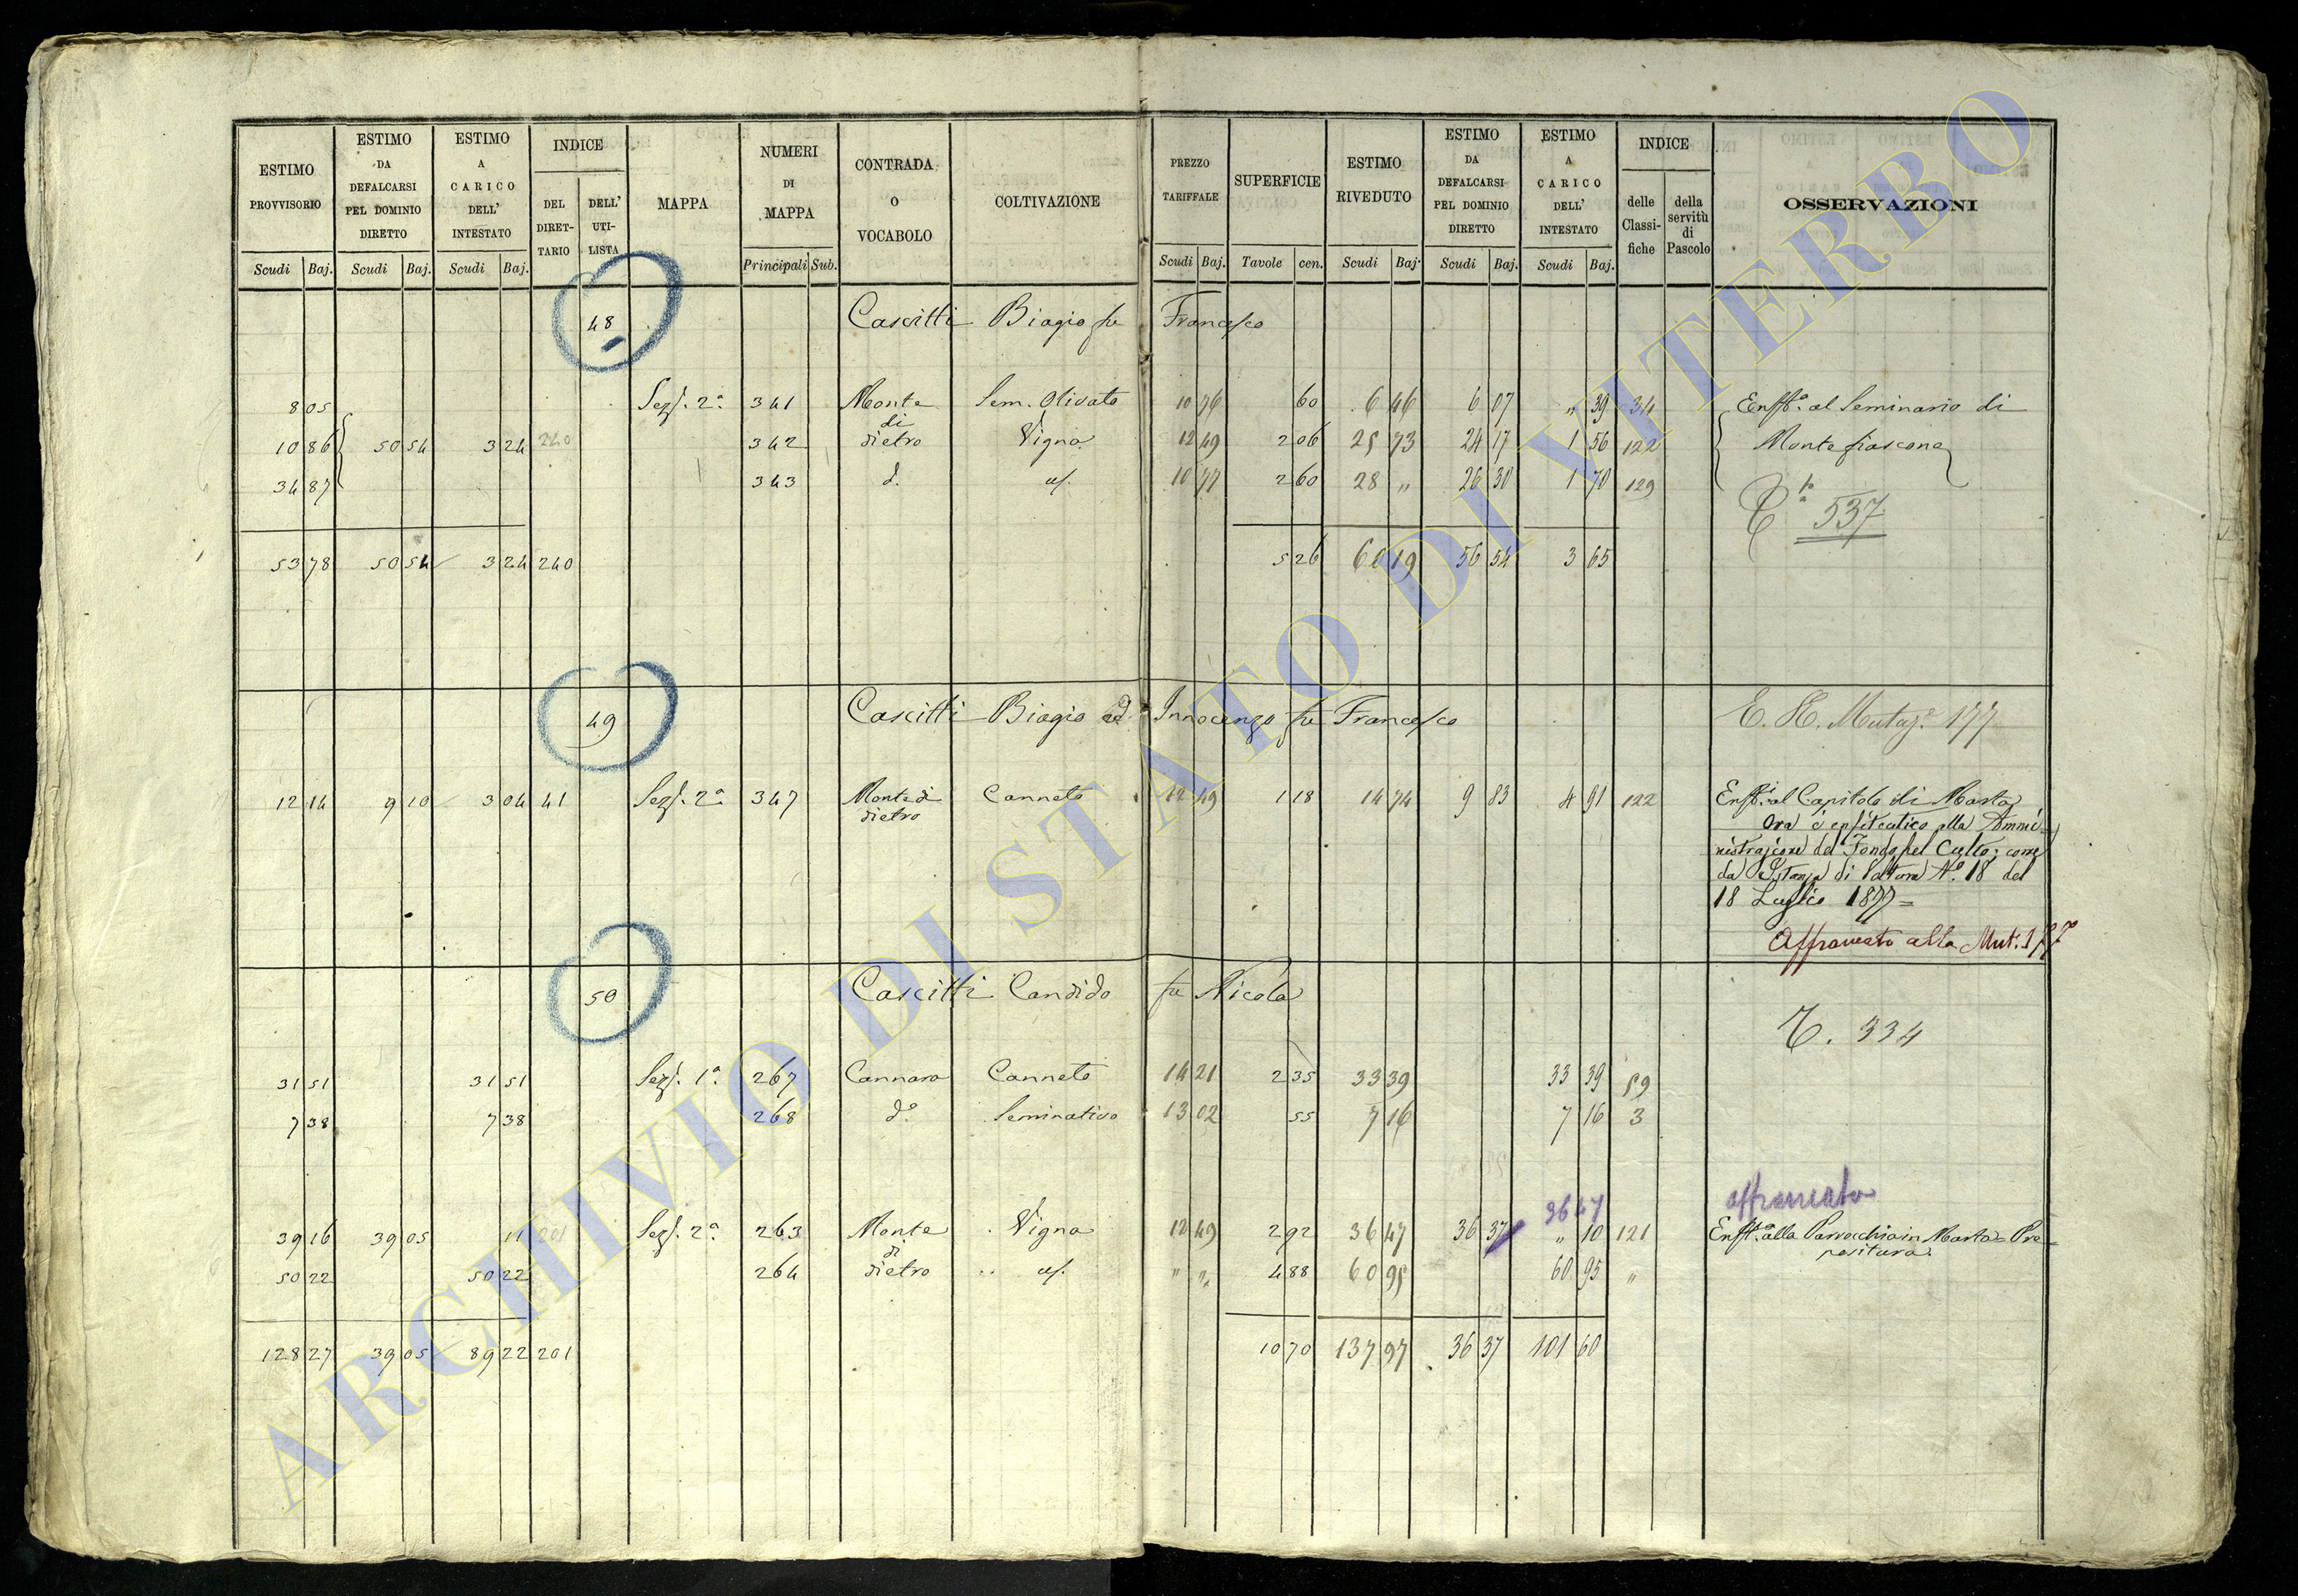 ESTIMO PROVVISORIO | ESTIMO DA DEFALCARSI PEL DOMINIO DIRETTO | ESTIMO A CARICO DELL' INTESTATO | INDICE DEL DIRET-TARIO | DELL' UTI-LISTA | MAPPA | NUMERI DI MAPPA | CONTRADA O VOCABOLO | COLTIVAZIONE | PREZZO TARIFFALE | SUPERFICIE | ESTIMO RIVEDUTO | ESTIMO DA DEFALCARSI PEL DOMINIO DIRETTO | ESTIMO A CARICO DELL' INTESTATO | INDICE delle Classi-fiche | della servitù di Pascolo | OSSERVAZIONI
Scudi Baj. | Scudi Baj. | Scudi Baj. | Principali Sub. | Scudi Baj. | Tavole cen. | Scudi Baj. | Scudi Baj. | Scudi Baj.
48 Cascitti Biagio fu Francesco
8 05 | Sezf. 2a. | 341 | Monte | Sem. Olivato | 10 76 | 60 | 6 46 | 6 07 | " 39 | 34 | Enft.o al Seminario di
10 86 | 50 54 | 3 24 | 240 | 342 | di dietro | Vigna | 12 49 | 2 06 | 25 73 | 24 17 | 1 56 | 122 | Montefiascone
34 87 | 343 | d. | 10 77 | 2 60 | 28 " | 26 30 | 1 70 | 129
537
53 78 | 50 54 | 3 24 | 240 | 5 26 | 60 19 | 56 54 | 3 65
49 Cascitti Biagio ed Innocenzo fu Francesco
Mutaz.e 177
12 14 | 9 10 | 3 04 | 41 | Sezf. 2a. | 347 | Monte di dietro | Canneto | 12 49 | 1 18 | 14 74 | 9 83 | 4 91 | 122 | Enft.i al Capitolo di Marta
Ora è enfiteutico alla Ammi=
nistrazione del Fondo pel Culto; come
da Istanza di Voltura N.o 18 del
18 Luglio 1877=
Affrancato alla Mut. 177
50 Cascitti Candido fu Nicola
334
31 51 | 31 51 | Sezf. 1a. | 267 | Cannara | Canneto | 14 21 | 2 35 | 33 39 | 33 39 | 59
7 38 | 7 38 | 268 | d.o | Seminativo | 13 02 | 55 | 7 16 | 7 16 | 3
36 47 | affrancato
39 16 | 39 05 | 11 | 201 | Sezf. 2a. | 263 | Monte | Vigna | 12 49 | 2 92 | 36 47 | 36 37 | " 10 | 121 | Enft.o alla Parrocchia in Marta= Pre=
positura
50 22 | 50 22 | 264 | di dietro | " " | 4 88 | 60 95 | 60 95 | "
128 27 | 39 05 | 89 22 | 201 | 10 70 | 137 97 | 36 37 | 101 60
ARCHIVIO DI STATO DI VITERBO